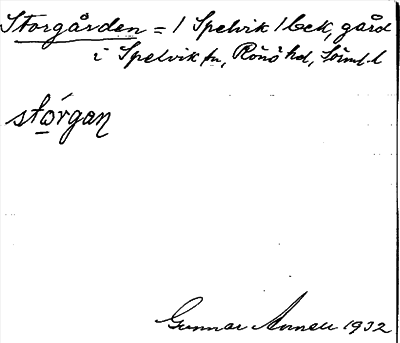 Storgården = 1 Spelvik 1 beck, gård
i Spelvik sn, Rönö hd, Söml l
stórgan
Gunnar 1932